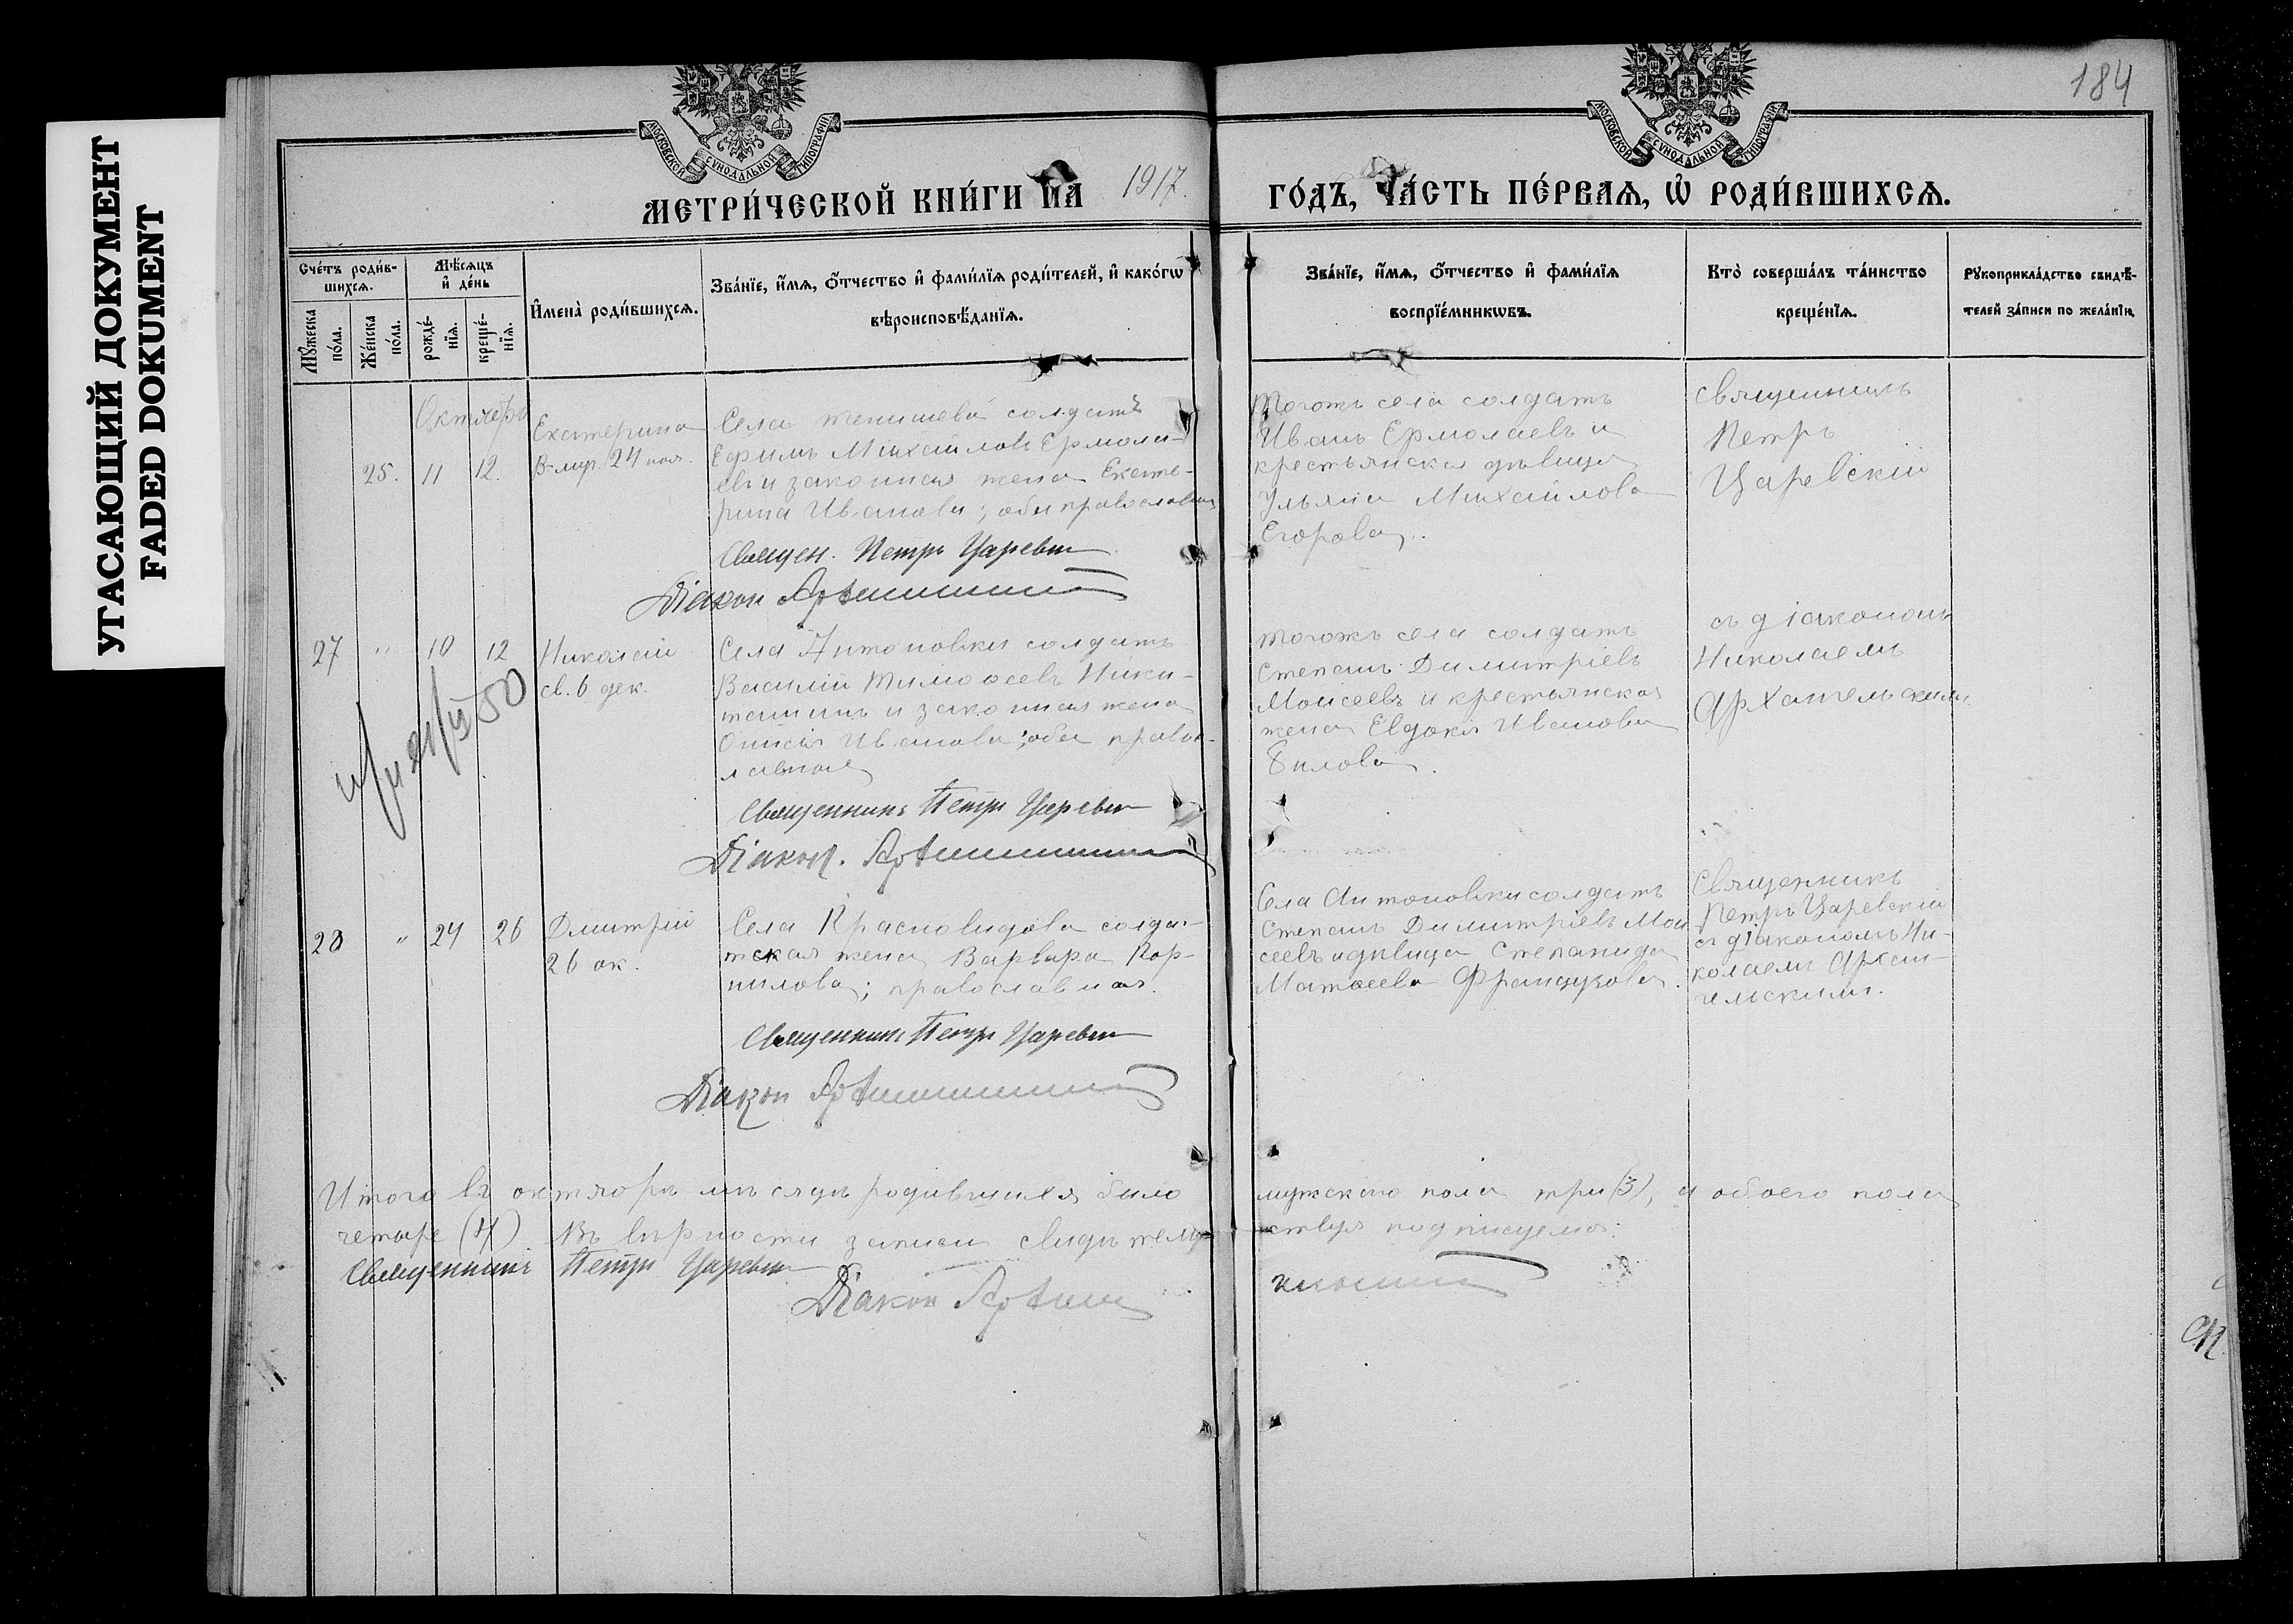 УГАСАЮЩИЙ ДОКУМЕНТ
FADED DOKUMENT
184
МОСКОВСКОЙ СѴНОДАЛЬНОЙ ТИПОГРАФІИ
МОСКОВСКОЙ СѴНОДАЛЬНОЙ ТИПОГРАФІИ
МЕТРИ́ЧЕСКОЙ КНИ́ГИ НА 1917. ГО́ДЪ, ЧА́СТЬ ПЕ́РВАѦ, Ѽ РОДИ́ВШИХСѦ.
Сче́тъ роди́в-
шихсѧ.
Мꙋ́жеска по́ла.
Же́нска по́ла.
Мѣ́сѧцъ и҆ де́нь
рожде́-нїѧ.
креще́-нїѧ.
И҆мена̀ роди́вшихсѧ.
Зва́нїе, и҆́мѧ, ѻ҆́тчество и҆ фами́лїѧ роди́телей, и҆ како́гѡ
вѣроисповѣ́данїѧ.
Зва́нїе, и҆́мѧ, ѻ҆́тчество и҆ фами́лїѧ
воспрїе́мникѡвъ.
Кто̀ соверша́лъ та́инство
креще́нїѧ.
Рꙋкоприкла́дство свидѣ́-
телей за́писи по жела́нїю.
Октябрь
25. 11 12.
Екатерина
В-муч. 24 ноя.
Села Тенишева солдатъ
Ефимъ Михайловъ Ермола-
евъ и законная жена Екате-
рина Иванова; оба православн
Священ. Петръ Царевск
Діакон
Тогожъ села солдатъ
Иванъ Ермолаевъ и
крестьянская дѣвица
Ульяна Михайлова
Егорова.
Священникъ
Петръ
Царевскій
27 " 10 12
Николай
св. 6 дек.
Села Антоновки солдатъ
Василій Тимоѳеевъ Ники-
тинъ и законная жена
Онисія Иванова; оба право-
лавные
Священникъ Петръ Царевск
Діакон.
Тогожъ села солдатъ
Степанъ Димитріевъ
Моисеевъ и крестьянская
жена Евдокія Иванова
Билова.
съ діакономъ
Николаемъ
Архангельскимъ.
28 " 24 26
Дмитрій
26 ок.
Села Красновидова солда-
тская жена Варвара Кор-
нилова; православная.
Священникъ Петръ Царевск
Діакон
Села Антоновки солдатъ
Степанъ Димитріевъ Мои
сеевъ и дѣвица Степанида
Матѳеева Французова.
Священникъ
Петръ Царевскій
съ діакономъ Ни-
колаемъ Архан-
гельскимъ.
Итого въ октябрѣ мѣсяцѣ родившихся было мужского пола три (3), а обоего пола
четыре (4) Въ вѣрности записи свидѣтельствуя подписуемся:
Священникъ Петръ Царевск
Діакон